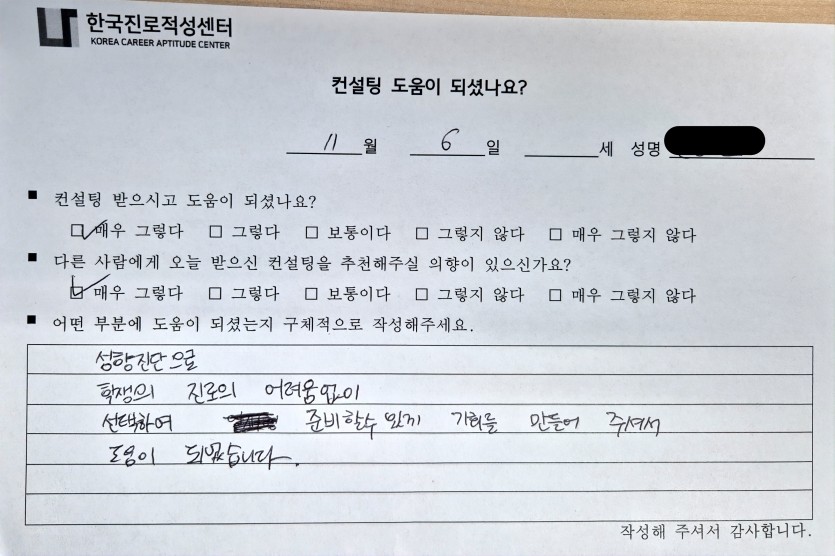 한국진로적성센터
KOREA CAREER APTITUDE CENTER
컨설팅 도움이 되셨나요?
11 월 6 일 세 성명
■ 컨설팅 받으시고 도움이 되셨나요?
☑ 매우 그렇다 □ 그렇다 □ 보통이다 □ 그렇지 않다 □ 매우 그렇지 않다
■ 다른 사람에게 오늘 받으신 컨설팅을 추천해주실 의향이 있으신가요?
☑ 매우 그렇다 □ 그렇다 □ 보통이다 □ 그렇지 않다 □ 매우 그렇지 않다
■ 어떤 부분에 도움이 되셨는지 구체적으로 작성해주세요.
성향진단으로
학생의 진로의 어려움없이
선택하여 준비할수 있게 기회를 만들어 주셔서
도움이 되었습니다.
작성해 주셔서 감사합니다.